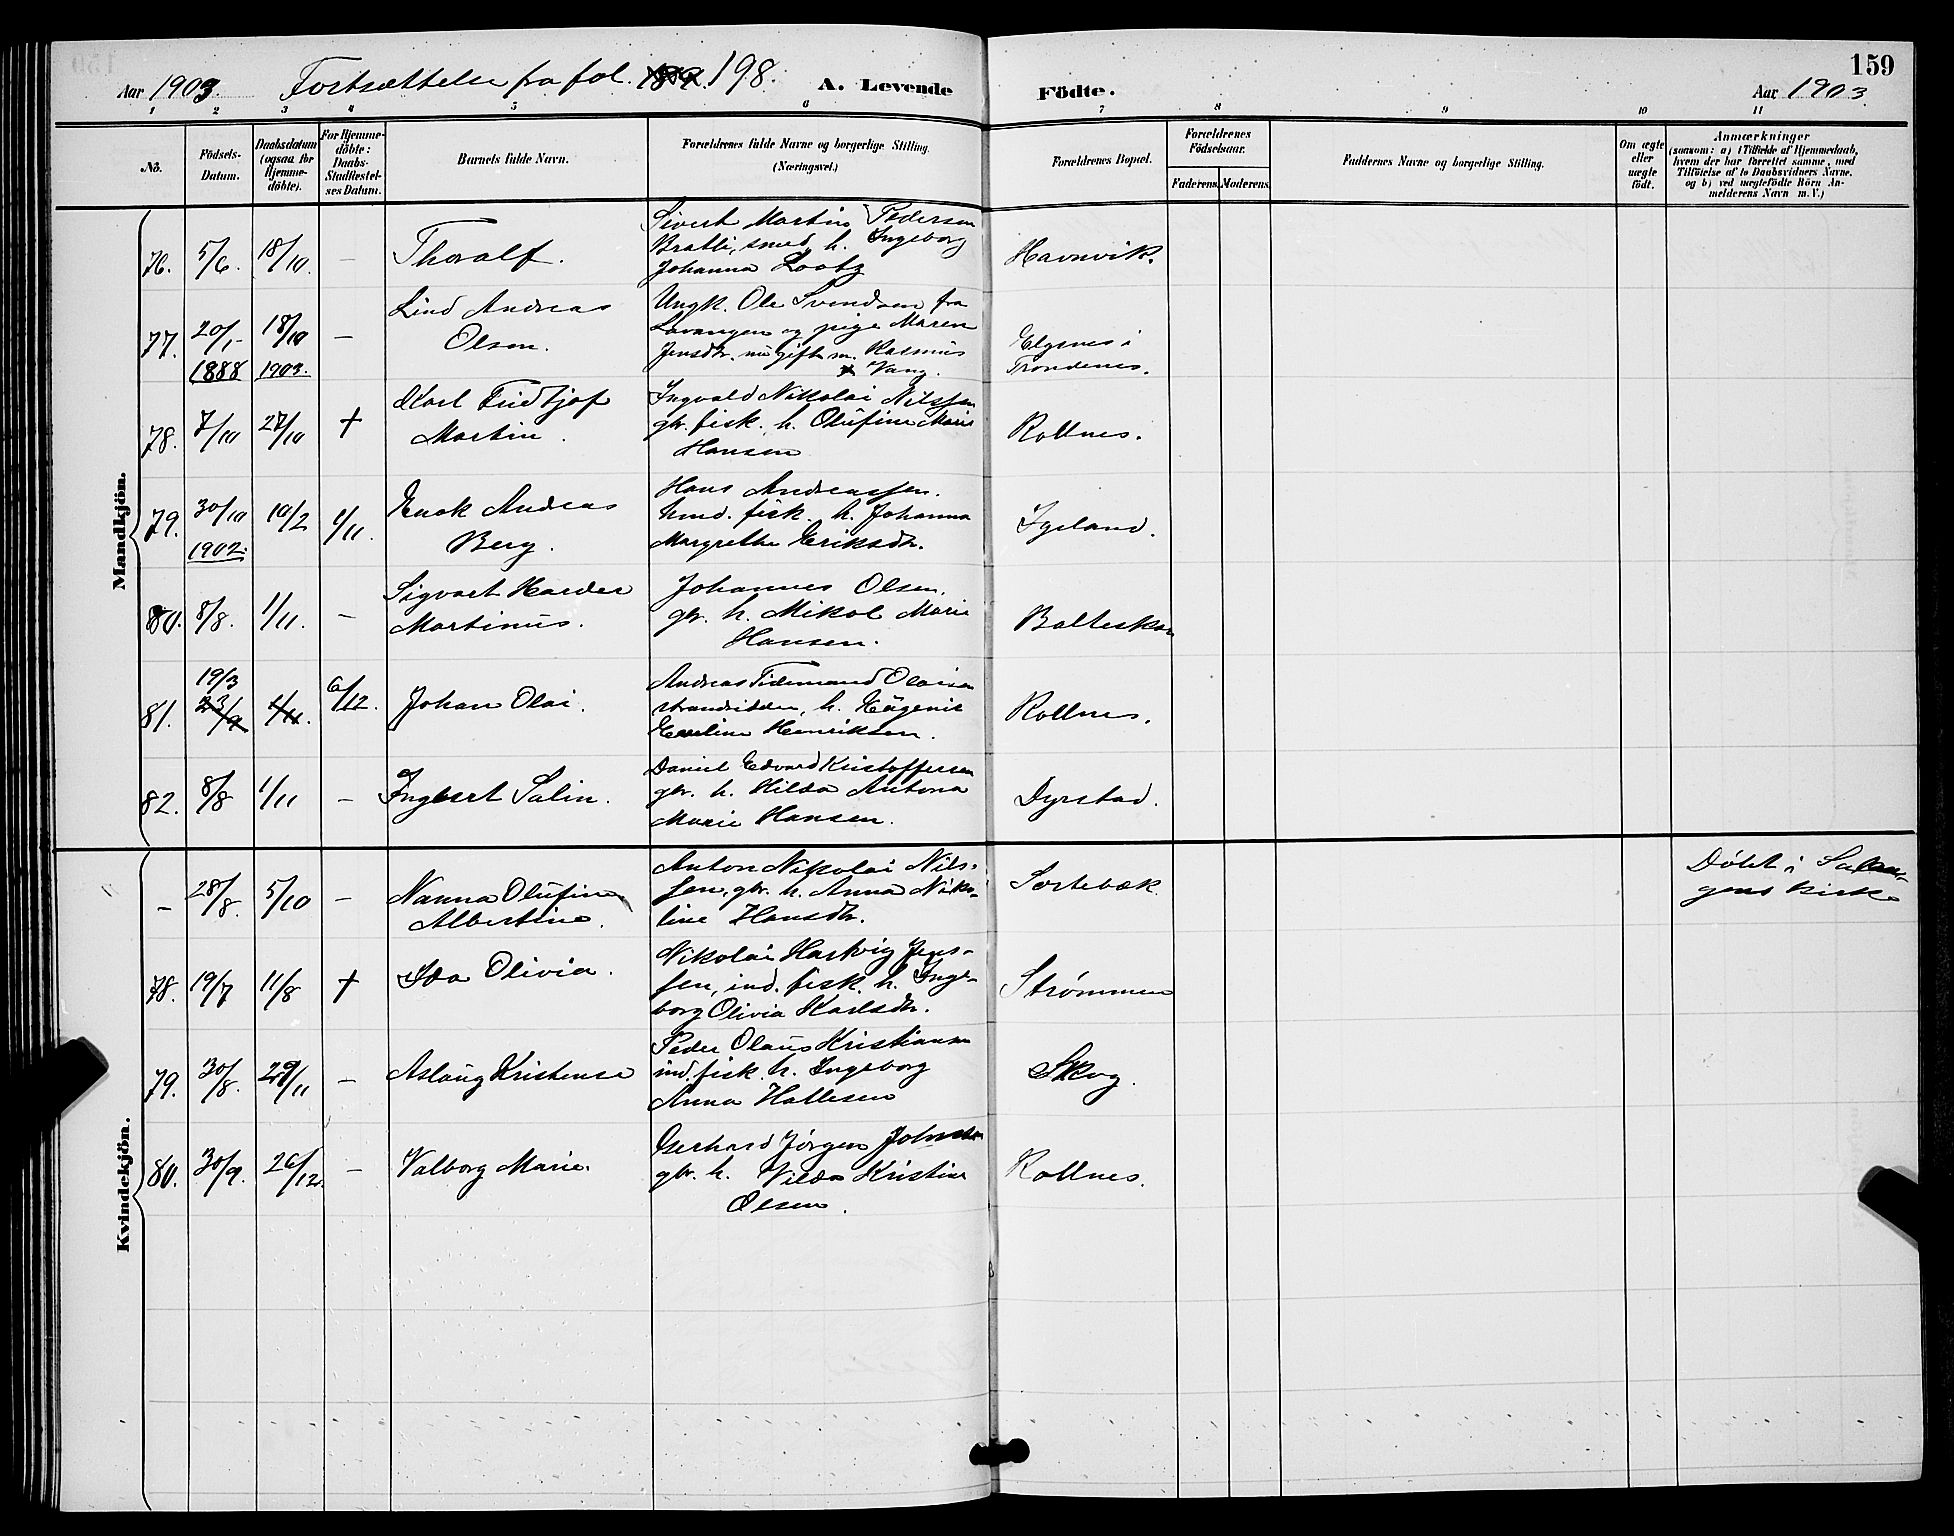 159
Aar 1903. Fortsættelse fra fol. 189. 198. A. Levende Födte. Aar 1903.
1 2 3 4 5 6 7 8 9 10 11
Nö.
Födsels-Datum.
Daabsdatum (ogsaa for Hjemme-döbte).
For Hjemme-döbte: Daabs-Stadfæstel-ses Datum.
Barnets fulde Navn.
Forældrenes fulde Navne og borgerlige Stilling. (Næringsvei.)
Forældrenes Bopæl.
Forældrenes Födselsaar.
Faderens. Moderens.
Faddernes Navne og borgerlige Stilling.
Om ægte eller uægte födt.
Anmærkninger
(saasom: a) i Tilfælde af Hjemmedaab,
hvem der har forrettet samme, med
Tilföielse af to Daabsvidners Navne,
og b) ved uægtefödte Börn An-
melderens Navn m. V.)
Mandkjön.
76. 5/6. 18/10. – Thoralf.
Sivert Martin Pedersen
Bratli, smed, h. Ingeborg
Johanna Lootz
Havnvik.
77. 20/1- 1888 18/10 1903. –
Lind Andreas
Olsen.
Ungk. Ole Svendsen fra
Lavangen og pige Maren
Jensdtr. nu gift m. Rasmus
Vang.
Elgsnes i
Trondenes.
78. 7/10 27/10 +
Karl Fridtjof
Martin.
Ingvald Nikolai Nilssen
gbr. fisk. h. Olufine Marie
Hansen
Rollnes.
79. 30/10 1902. 10/2 1/11.
Enok Andreas
Berg.
Hans Andreassen.
hmd. fisk. h. Johanna
Margrethe Eriksdtr.
Igeland.
80. 8/8. 1/11. –
Sigvart Harder
Martinus.
Johannes Olsen.
gbr. h. Mikol Marie
Hansen.
Balteskar
81. 19/3 23/9 1/11. 6/12. Johan Olai.
Andreas Tidemand Olaisen
strandsidder, h. Eugenie
Eveline Henriksen.
Rollnes.
82. 8/8 1/11 – Ingbert Salin.
Daniel Edvard Kristoffersen
gbr. h. Hilda Antona
Marie Hansen.
Dyrstad.
Kvindekjön.
– 28/8. 5/10 –
Nanna Olufine
Albertine.
Anton Nikolai Nils-
sen, gbr. h. Anna Niko-
line Hansdtr.
Sortebæk
Døbt i Salan-
gens kirke
78. 19/7 11/8 + Ida Olivia.
Nikolai Hartvig Jens-
sen, ind. fisk. h. Inge-
borg Olivia Karlsdtr.
Strømmen
79. 30/8. 29/11 – Aslaug Kristense
Peder Olaus Kristiansen
ind. fisk. h. Ingeborg
Anna Hallesen
Skog.
80. 30/9. 26/12. – Valborg Marie.
Gerhard Jørgen Johnsen
gbr. h. Vilda Kristine
Olsen.
Rollnes.